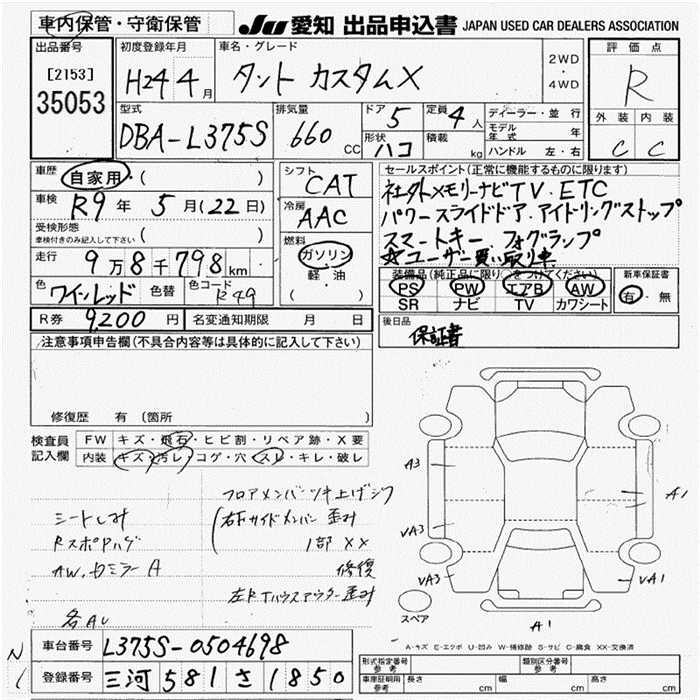 車内保管・守衛保管
JU 愛知 出品申込書 JAPAN USED CAR DEALERS ASSOCIATION
出品番号 初度登録年月 車名・グレード 2WD・4WD 評価点
[2153]
35053
H24 4月 タント カスタムX R
型式 排気量 ドア 5 定員 4人 ディーラー・並行 外装 内装
DBA-L375S 660cc 形状 ハコ 積載 kg モデル年式 年 C C
ハンドル 左・右
車歴 自家用 ( ) シフト CAT セールスポイント(正常に機能するものに限ります)
車検 R9年 5月(22日) 冷房 AAC 社外メモリーナビTV.ETC
受検形態 ( ) パワースライドドア.アイドリングストップ
車検付きのみ記入して下さい 燃料 スマートキー.フォグランプ
走行 9万8千798km ガソリン 軽・油 ☆ユーザー買い取り車
色 ワインレッド 色替 色コード R49 装備品(純正品に限り○をつけてください) 新車保証書
PS PW エアB AW 有・無
SR ナビ TV カワシート
R券 9,200円 名変通知期限 月 日 後日品
保証書
注意事項申告欄(不具合内容等は具体的に記入して下さい)
修復歴 有(箇所 )
検査員記入欄 FW キズ・飛石・ヒビ割・リペア跡・X要
内装 キズ・汚レ・コゲ・穴・スレ・キレ・破レ
フロアメンバーツキ上げジワ
シートしみ 右Fサイドメンバー歪み
RスポPハゲ 1部XX
AW.ドミラーA 修復
左RTハウスアウター歪み
各AU
A3 A1
VA3
VA3 VA1
スペア A1
A-キズ E-エクボ U-凹み W-補修跡 S-サビ C-腐食 XX-交換済
車台番号 L375S-0504698
登録番号 三河 581 さ 1850
形式指定番号 参考 類別区分番号 参考
車庫証明用 参考 長さ cm 幅 cm 高さ cm